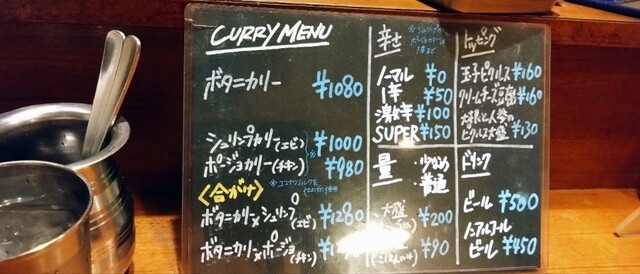 CURRY MENU
ボタニカリー ¥1080
シュリンプカリー(エビ) ¥1000
ポージョカリー(チキン) ¥980
<合がけ>
ボタニカリ×シュリンプ(エビ) ¥1280
ボタニカリ×ポージョ(チキン)
辛さ
ノーマル ¥0
1辛 ¥50
激辛 ¥100
SUPER ¥150
量
少なめ
普通
大盛 ¥200
¥90
トッピング
玉子ピクルス ¥160
クリームチーズ豆腐 ¥160
大根と人参の
ピクルス大盛 ¥130
ドリンク
ビール ¥500
ノンアルコール
ビール ¥450